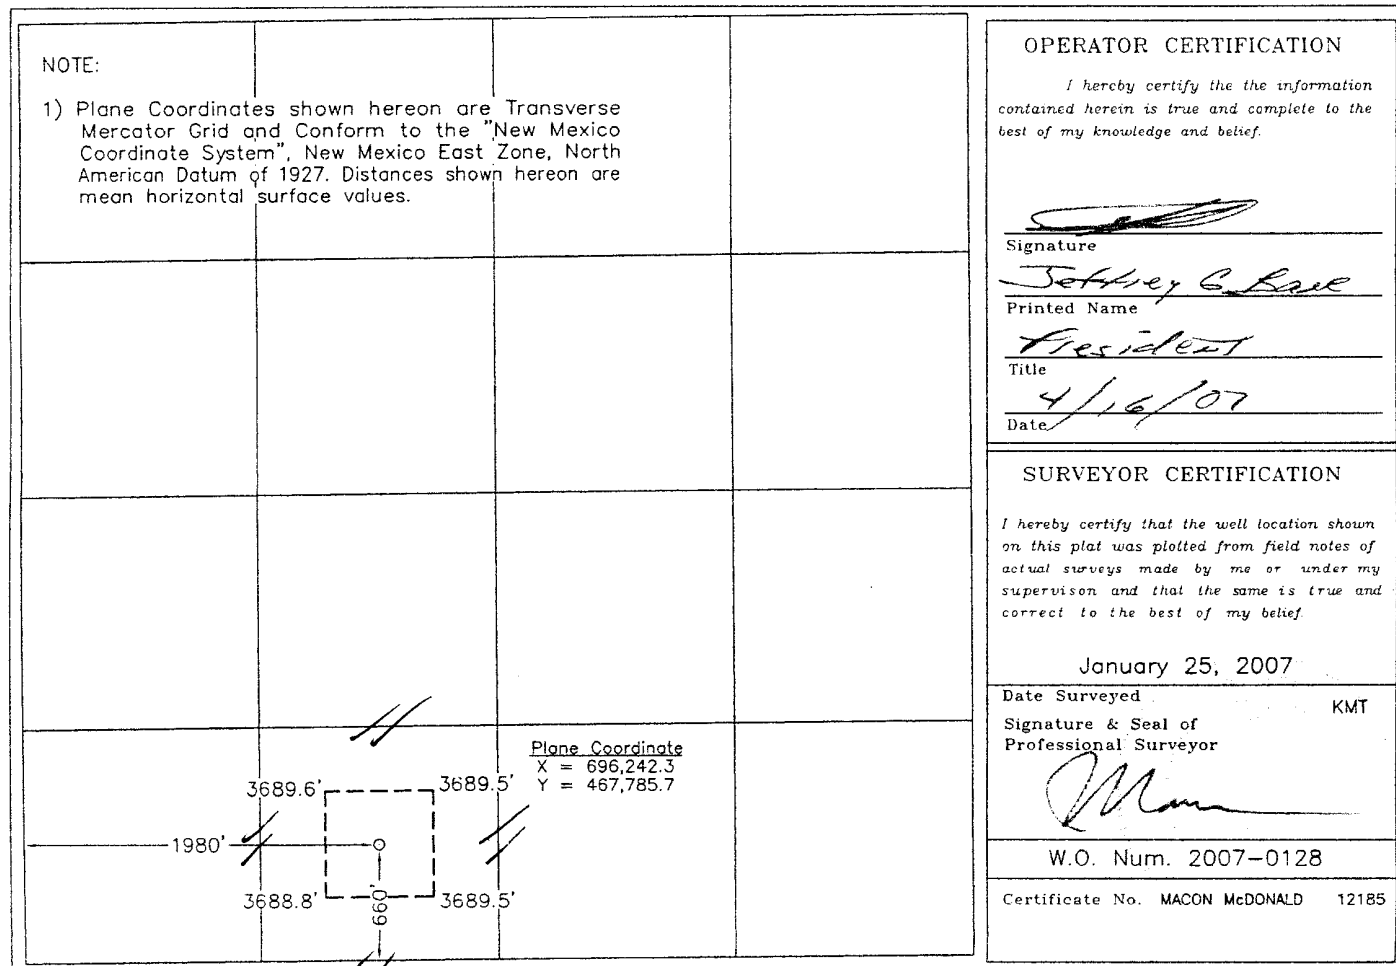 NOTE:
1) Plane Coordinates shown hereon are Transverse
Mercator Grid and Conform to the "New Mexico
Coordinate System", New Mexico East Zone, North
American Datum of 1927. Distances shown hereon are
mean horizontal surface values.
Plane Coordinate
X = 696,242.3
Y = 467,785.7
3689.6'
3689.5'
1980'
3688.8'
660'
3689.5'
OPERATOR CERTIFICATION
I hereby certify the the information
contained herein is true and complete to the
best of my knowledge and belief.
Signature
Jeffrey G
Printed Name
President
Title
4/16/07
Date
SURVEYOR CERTIFICATION
I hereby certify that the well location shown
on this plat was plotted from field notes of
actual surveys made by me or under my
supervison and that the same is true and
correct to the best of my belief.
January 25, 2007
Date Surveyed
KMT
Signature & Seal of
Professional Surveyor
W.O. Num. 2007-0128
Certificate No. MACON McDONALD 12185